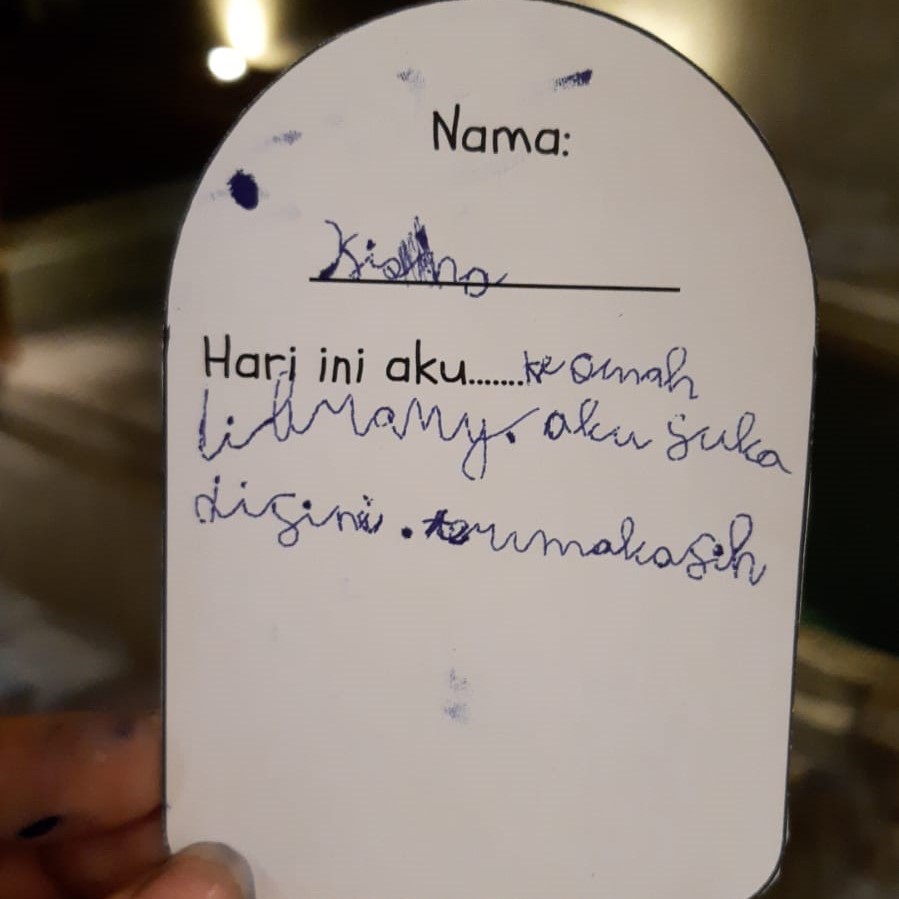 Nama:
Hari ini aku.......ke omah
library. aku suka
disini. terimakasih